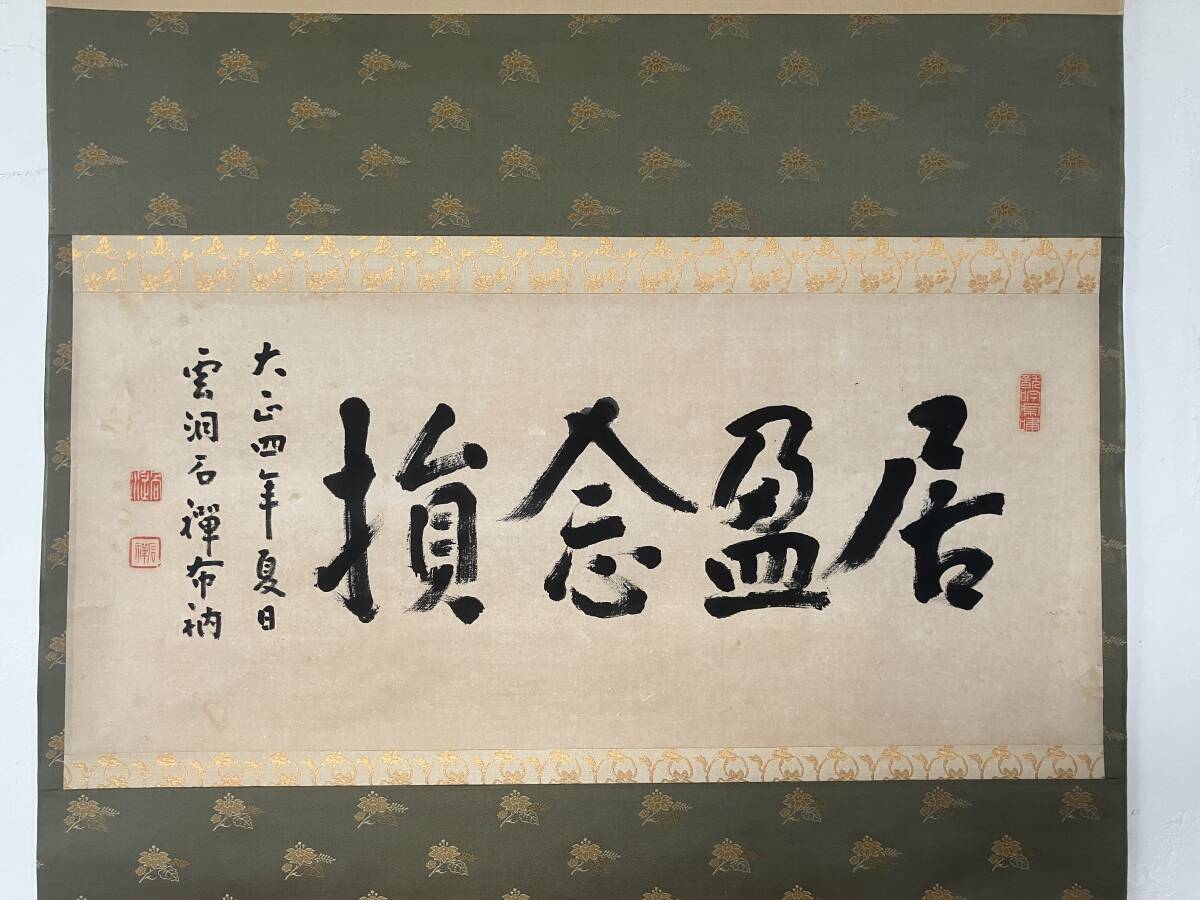 居盈念損
大正四年夏日
雲洞石禪布衲